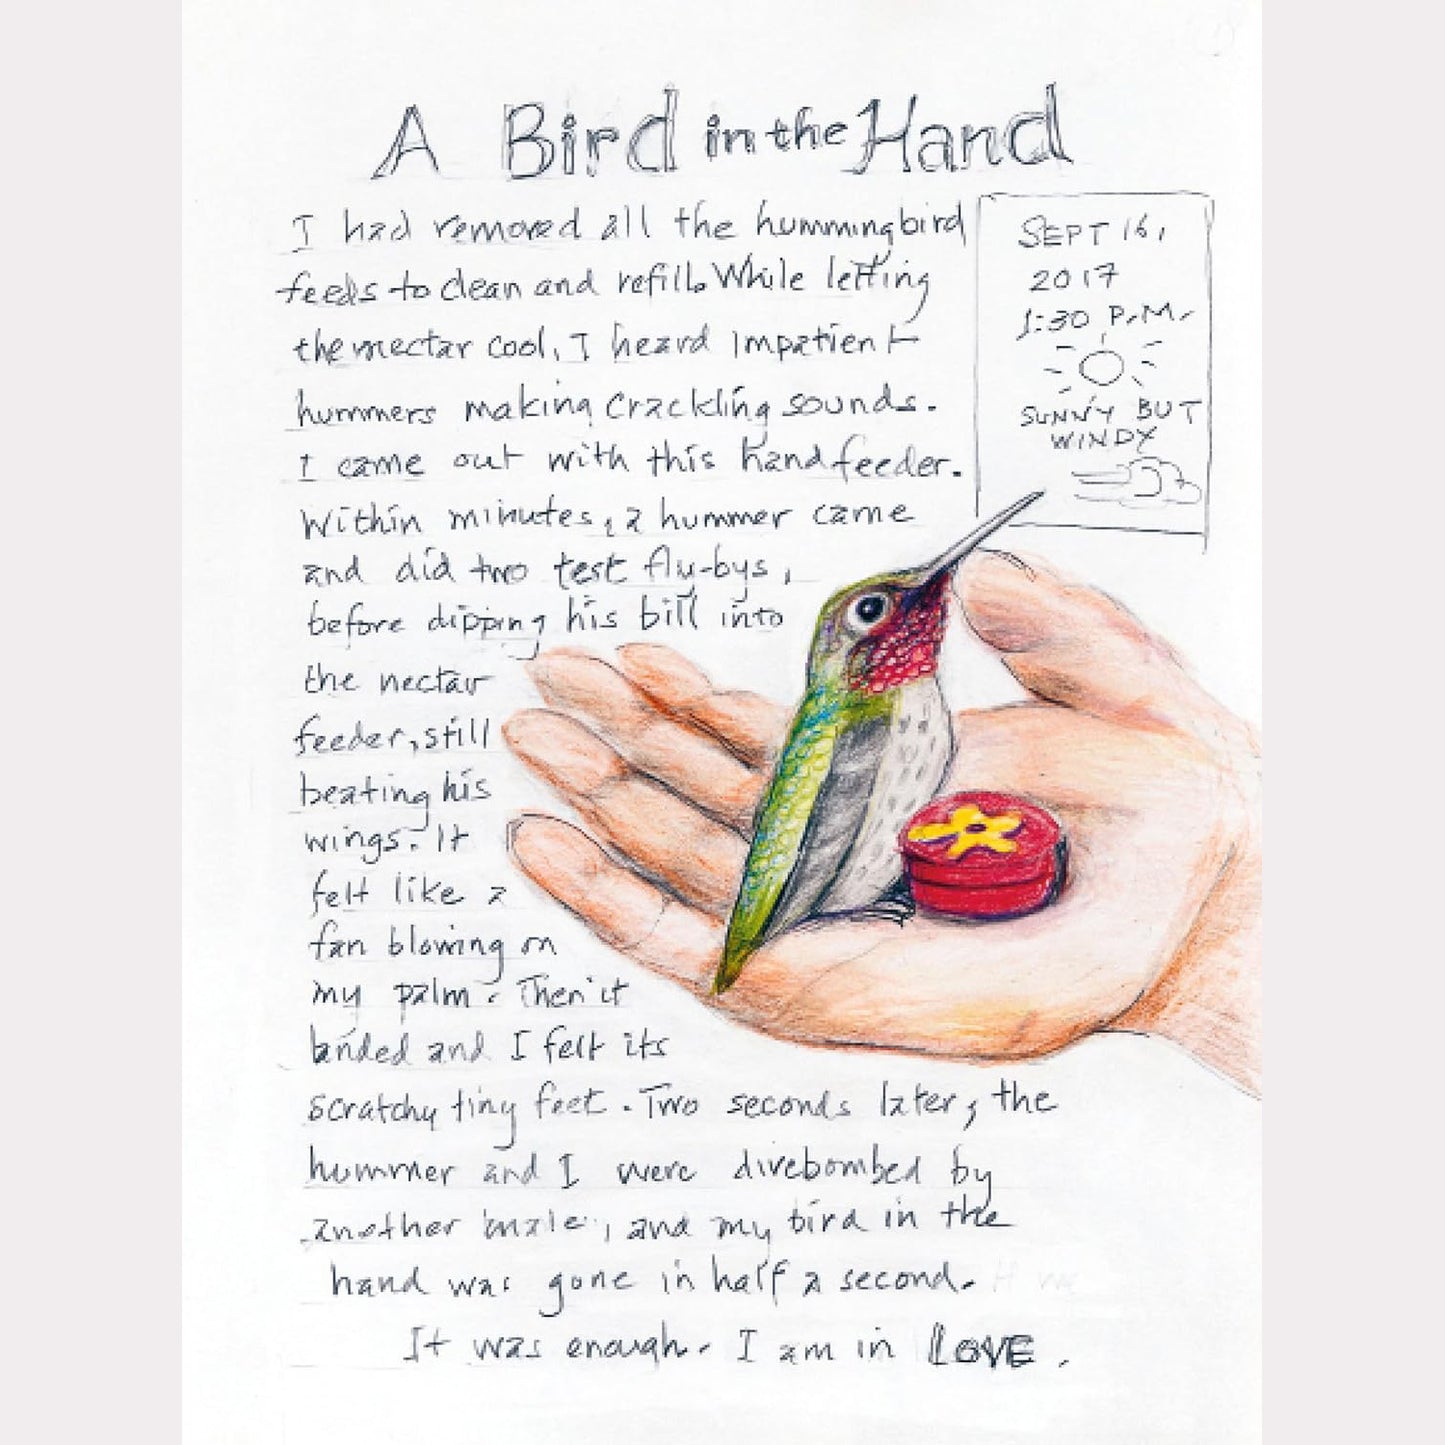 A Bird in the Hand
I had removed all the hummingbird
feeds to clean and refill. While letting
the nectar cool, I heard impatient
hummers making crackling sounds.
I came out with this handfeeder.
Within minutes, a hummer came
and did two test fly-bys,
before dipping his bill into
the nectar
feeder, still
beating his
wings. It
felt like a
fan blowing on
my palm. Then it
landed and I felt its
scratchy tiny feet. Two seconds later, the
hummer and I were divebombed by
another male, and my bird in the
hand was gone in half a second.
It was enough. I am in LOVE.
SEPT 16,
2017
1:30 P.M.
SUNNY BUT
WINDY